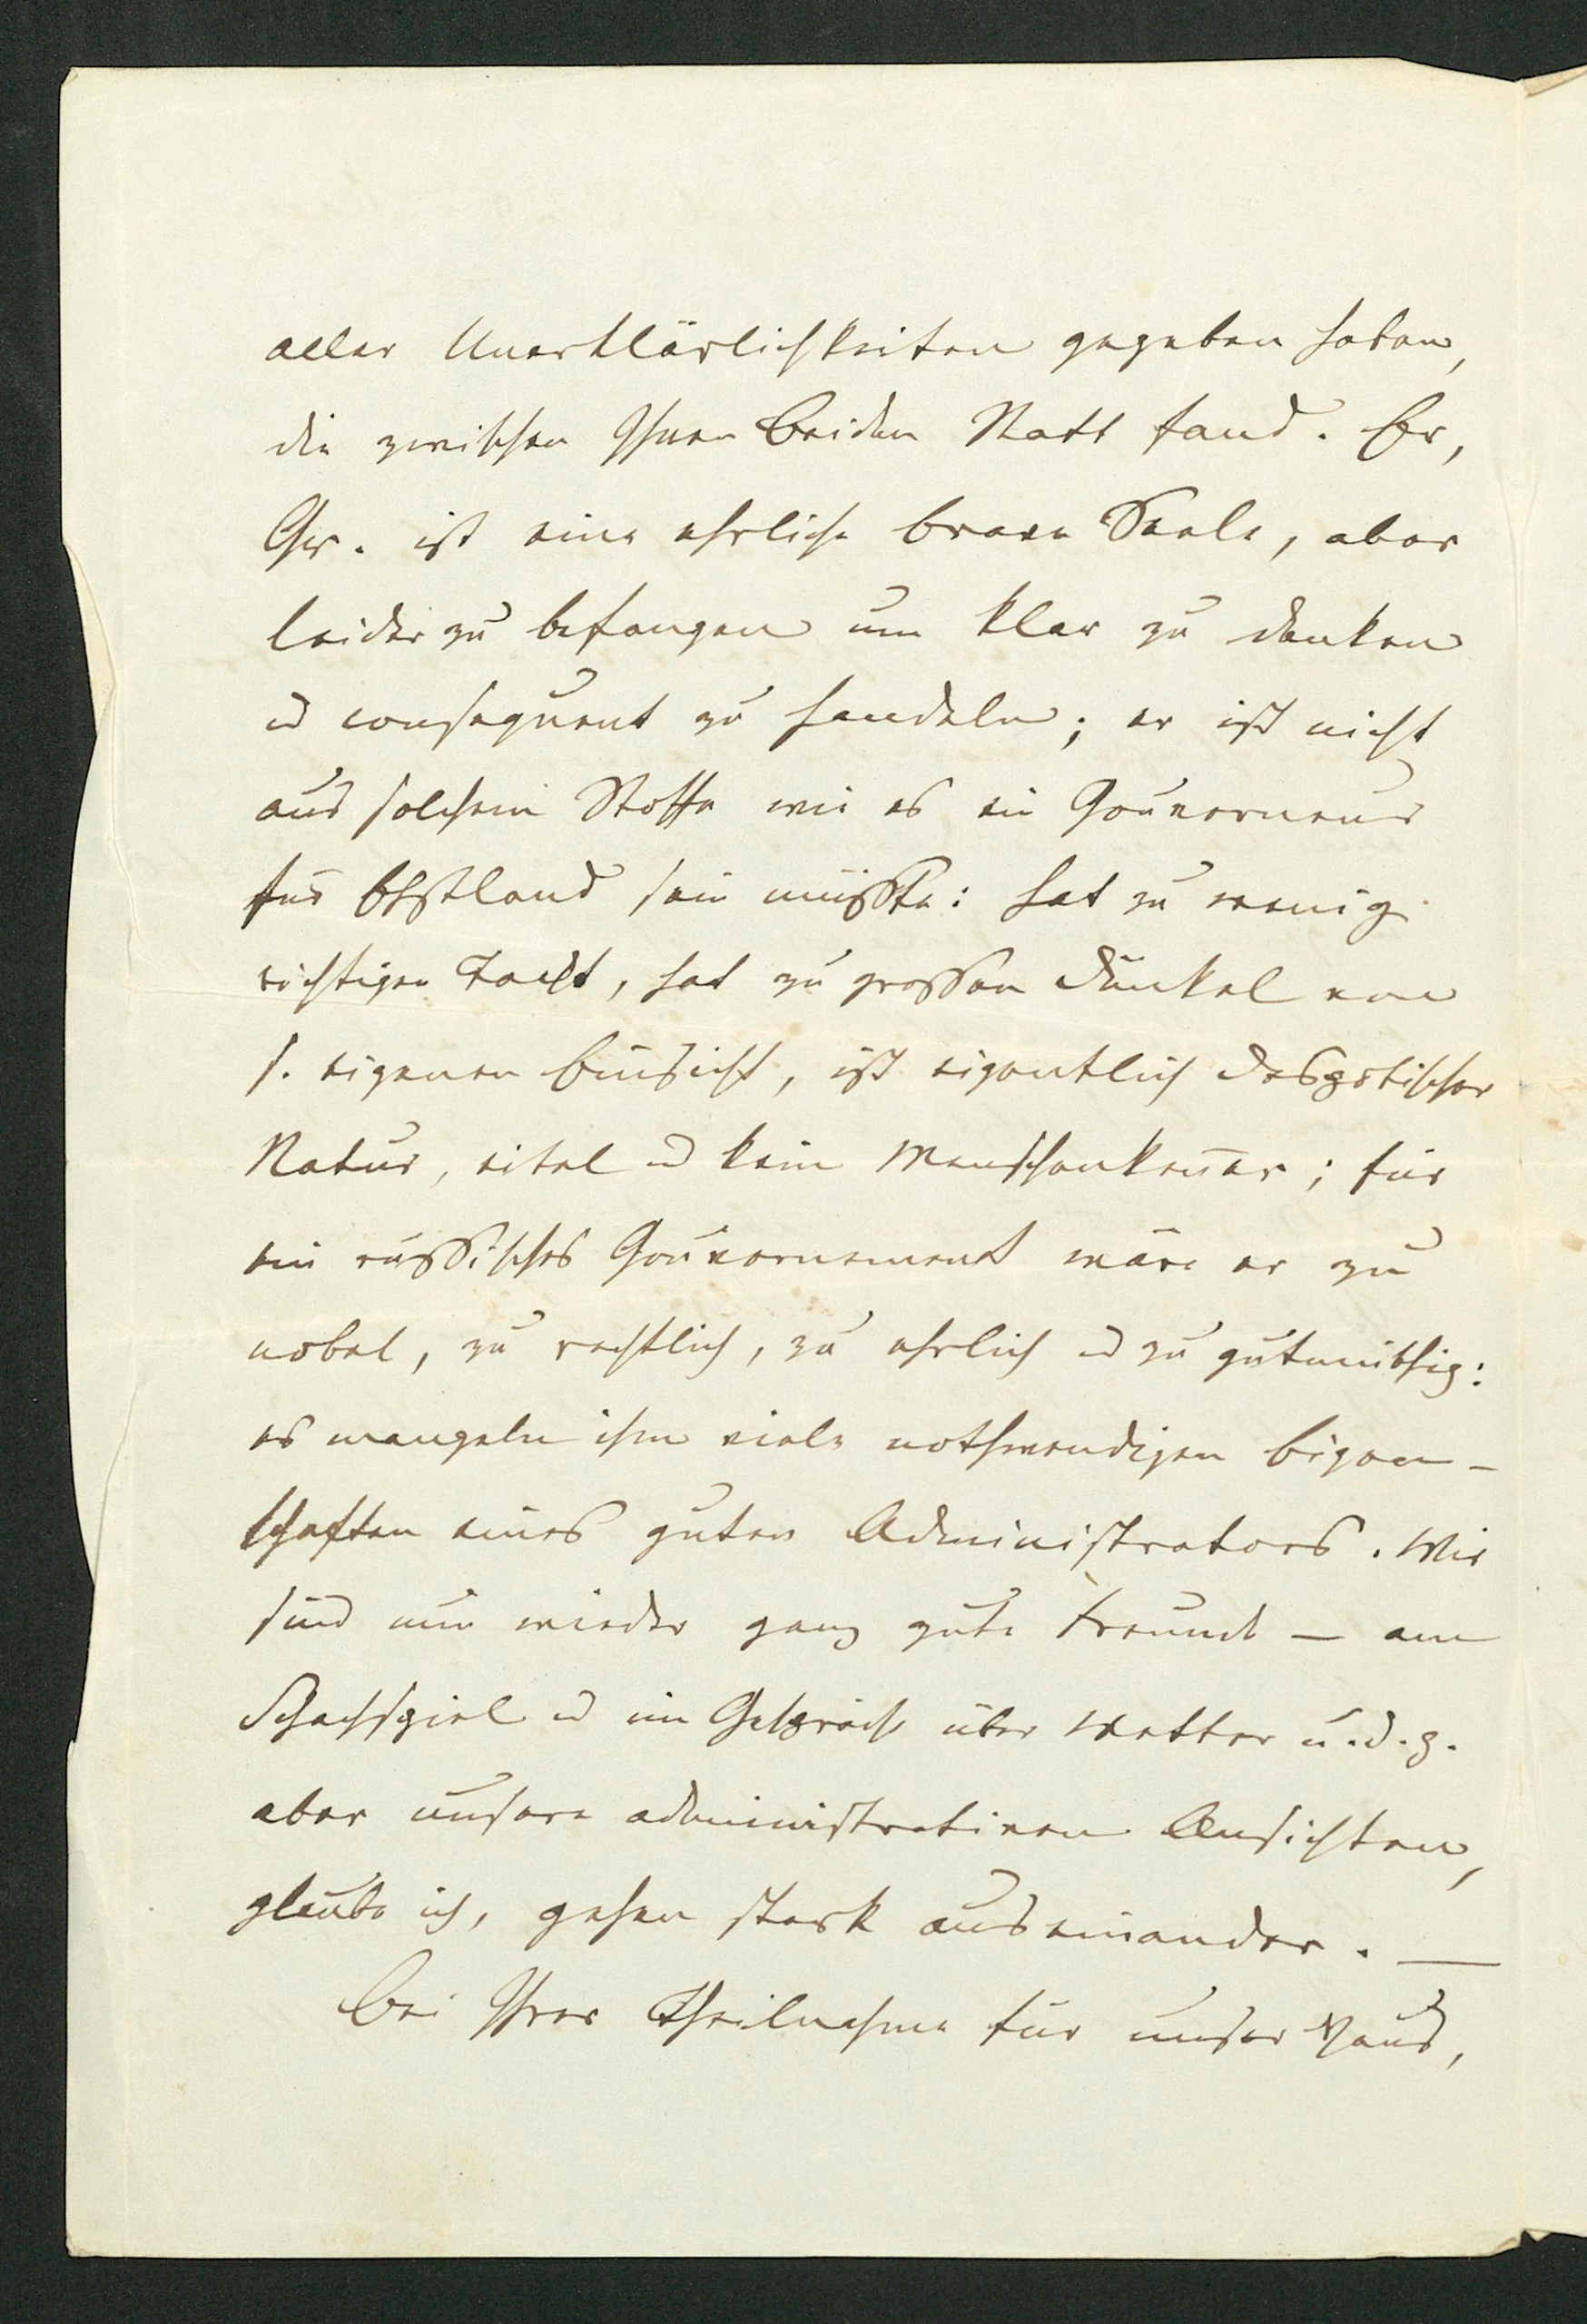 aller Unerklärlichkeiten gegeben haben,
die zwischen Ihnen Beiden Statt fand. Er,
Gr. ist eine ehrliche brave Seele, aber
leider zu befangen um klar zu denken
u consequent zu handeln; er ist nicht
aus solchem Stoffe wie es ein Gouverneur
für Ehstland sein müsste: hat zu wenig
richtigen Tackt, hat zu grossen Dünkel von
s. eigenen Einsicht, ist eigentlich despotischer
Natur, eitel u kein Menschenkeñer; für
ein russisches Gouvernement wäre er zu
nobel, zu rechtlich, zu ehrlich u zu gutmüthig:
es mangeln ihm viele nothwendigen Eigen-
schaften eines guten Administrators. Wir
sind nun wieder ganz gute Freunde — am
Schachspiel u im Gespräch über Wetter u.d.g.
aber unsere administrativen Ansichten,
glaube ich, gehen stark auseinander. —
Bei Ihrer Theilnahme für unser Haus,